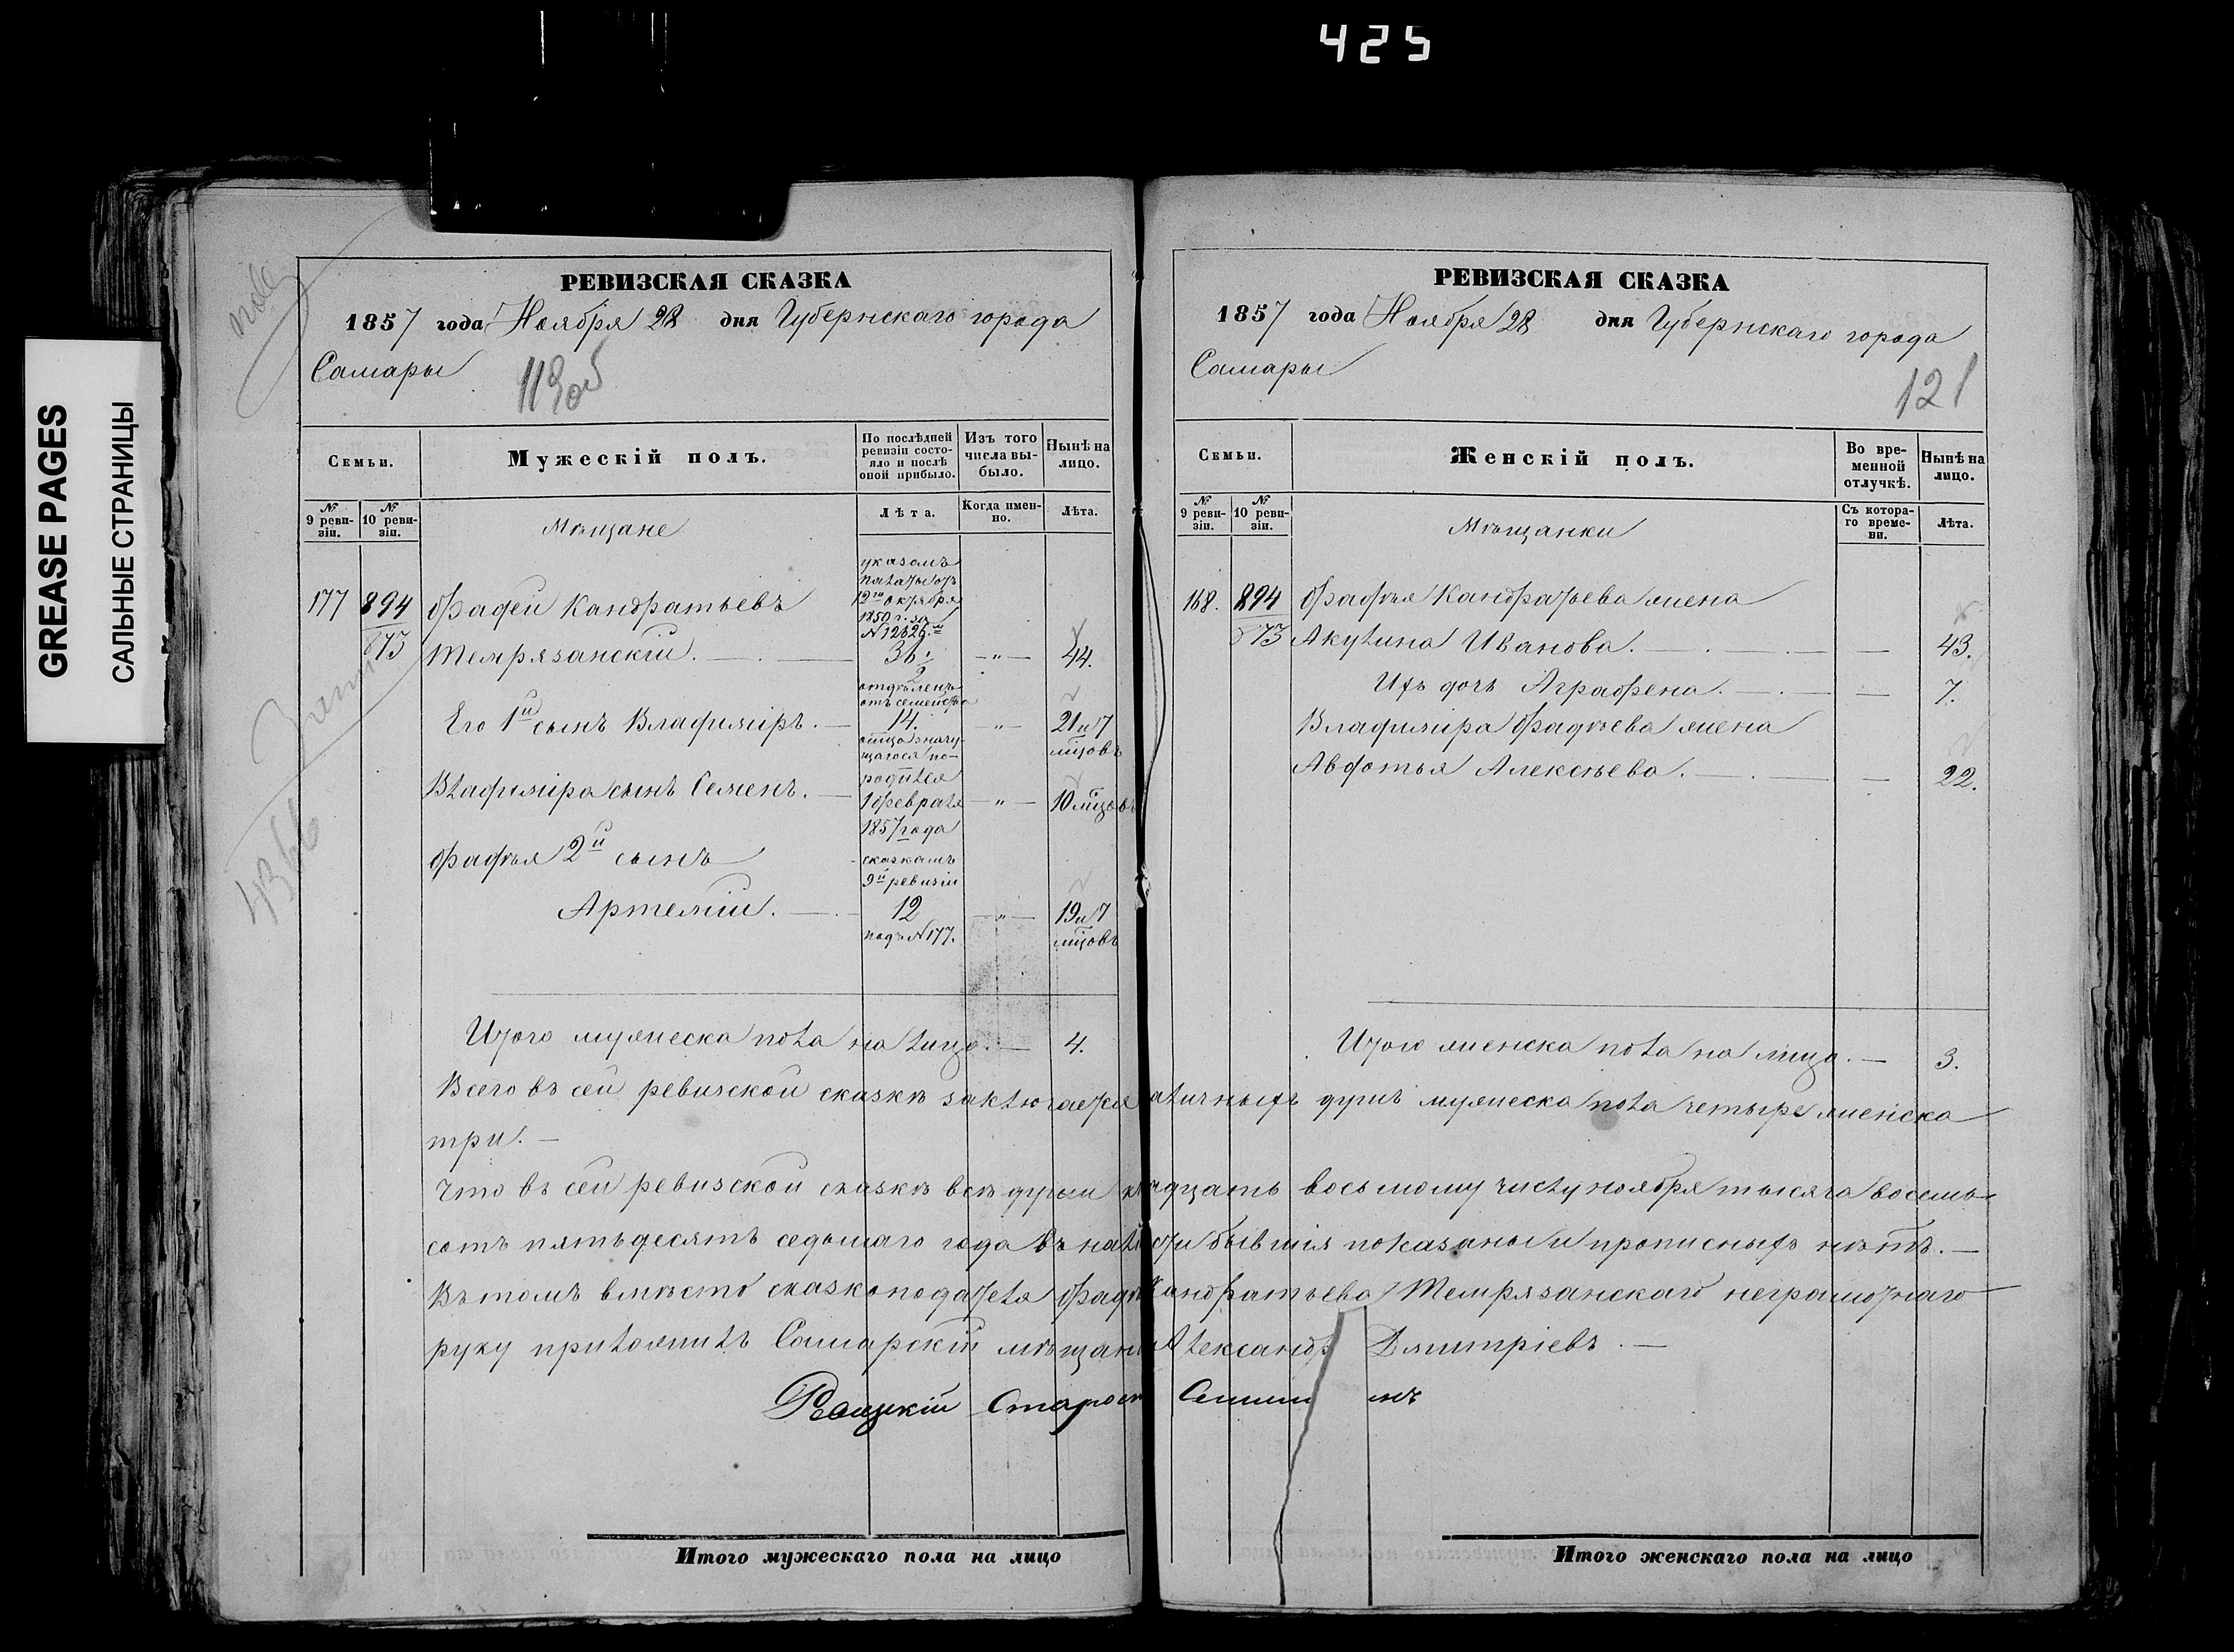 425
GREASE PAGES
САЛЬНЫЕ СТРАНИЦЫ
РЕВИЗСКАЯ СКАЗКА
1857 года Ноября 28 дня Губернскаго города
Самары
119об
Семьи.
Мужескій полъ.
По послѣдней ревизіи состояло и послѣ оной прибыло.
Изъ того числа выбыло.
Нынѣ на лицо.
№ 9 ревизіи.
№ 10 ревизіи.
Мѣщане
Лѣта.
Когда именно.
Лѣта.
указомъ
палаты отъ
12го октября
1850 г. за
N 12626.м
177 894 Фадей Кандратьевъ
873 Темрязанскій. 36 1/2 — " — 44.
отдѣленъ
отъ семейства
Его 1й сынъ Владиміръ. — 14. — " — 21 и 7
мцовъ
отца значущагося по-
родился
Владиміра сынъ Семенъ. — 1 февраля — " — 10 мцовъ
1857 года
Фадѣя 2й сынъ
сказкамъ
9й ревизіи
Артемій. — 12 — " — 19 и 7
подъ N 177. мцовъ
Итого мужеска пола на лицо. — 4.
РЕВИЗСКАЯ СКАЗКА
1857 года Ноября 28 дня Губернскаго города
Самары
121
Семьи.
Женскій полъ.
Во временной отлучкѣ.
Нынѣ на лицо.
№ 9 ревизіи.
№ 10 ревизіи.
Мѣщанки
Съ котораго времени.
Лѣта.
168. 894 Фадѣя Кандратьева жена
873 Акулина Иванова. — — 43.
Ихъ дочь Аграфена. — — 7.
Владиміра Фадѣева жена
Авдотья Алексѣева. — — 22.
Итого женска пола на лицо. — 3.
Всего въ сей ревизской сказкѣ заключается наличныхъ душъ мужеска пола четыре женска
три. —
Что въ сей ревизской сказкѣ всѣ души къ двадцать восьмому числу ноября тысяча восемь-
сотъ пятьдесятъ седьмаго года въ наличности бывшія показаны и прописныхъ нѣтъ. —
Въ томъ вмѣсто сказкоподателя Фадѣя Кандратьева Темрязанскаго неграмотнаго
руку приложилъ Самарскій мѣщанинъ Александръ Дмитріевъ. —
Итого мужескаго пола на лицо
Итого женскаго пола на лицо